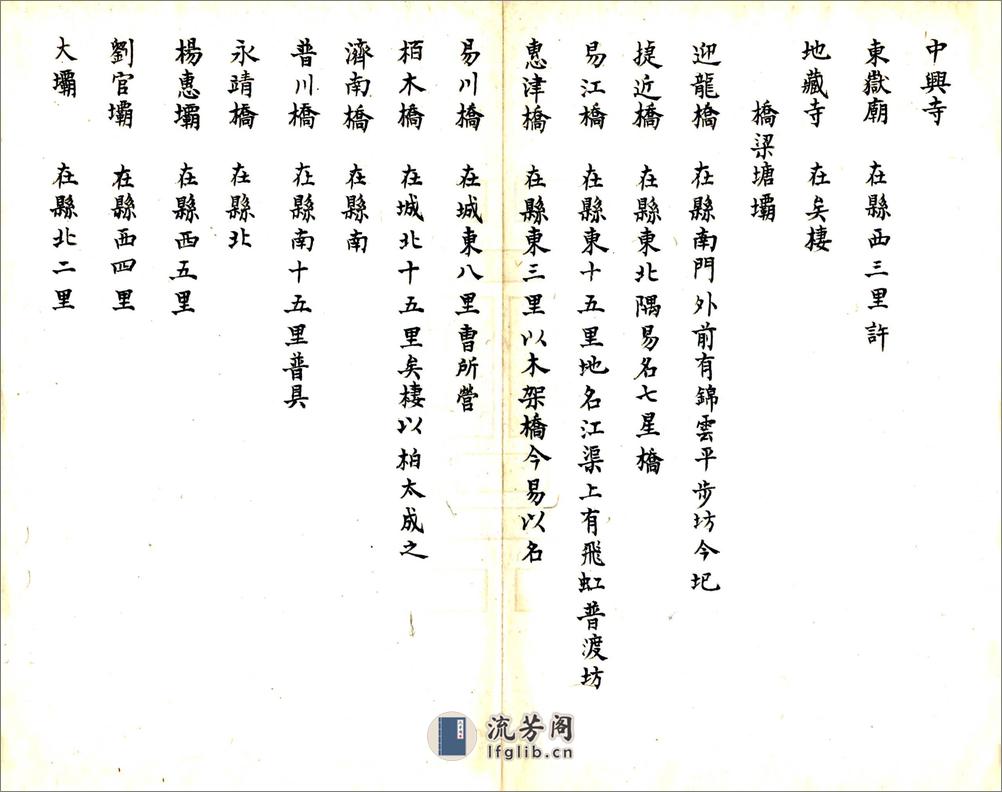 中興寺
東嶽廟 在縣西三里許
地藏寺 在矣棲
橋梁塘壩
迎龍橋 在縣南門外前有錦雲平步坊今圮
捷近橋 在縣東北隅易名七星橋
易江橋 在縣東十五里地名江渠上有飛虹普渡坊
惠津橋 在縣東三里以木架橋今易以名
易川橋 在城東八里曹所營
栢木橋 在城北十五里矣棲以柏太成之
濟南橋 在縣南
普川橋 在縣南十五里普具
永靖橋 在縣北
楊惠壩 在縣西五里
劉官壩 在縣西四里
大壩 在縣北二里
流芳阁
lfglib.cn